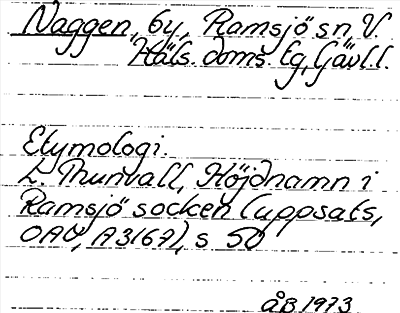 Naggen, by, Ramsjö sn V.
Häls. doms. tg, Gävl.l.
Etymologi.
L. Thunvall, Höjdnamn i
Ramsjö socken (uppsats,
OAU, A3167), s 50
ÅB 1973